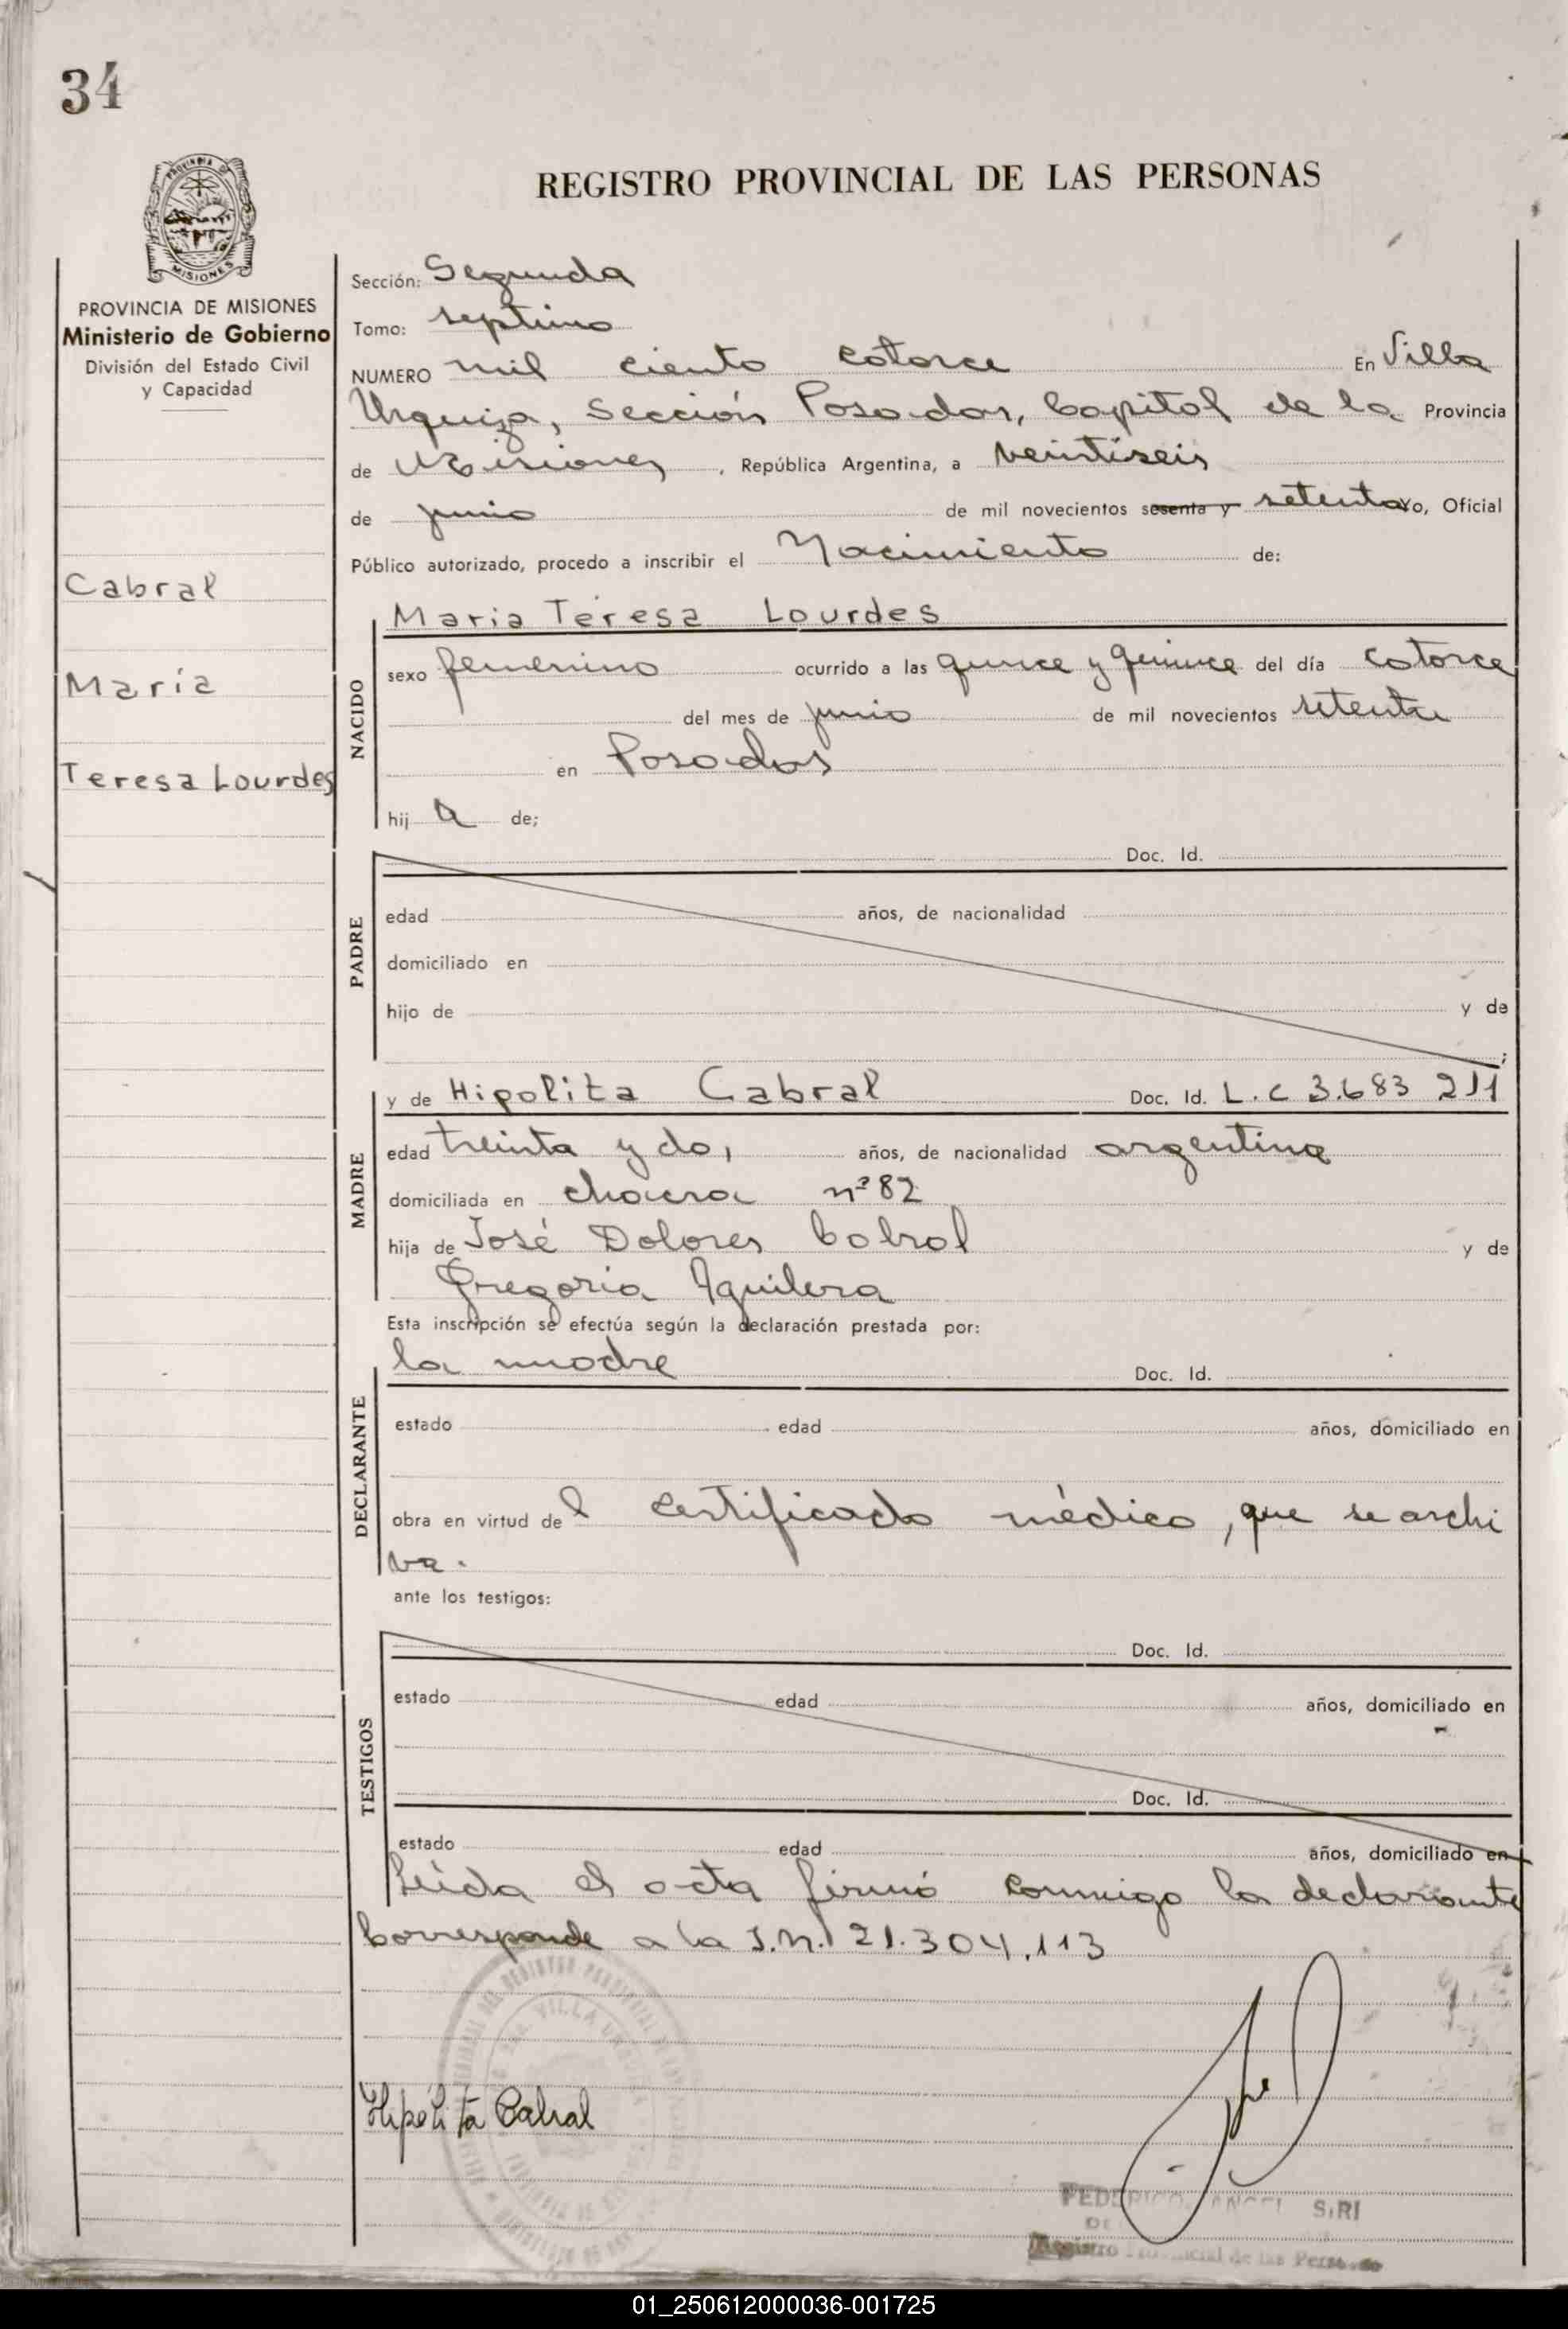 34
REGISTRO PROVINCIAL DE LAS PERSONAS
MISIONES
PROVINCIA DE MISIONES
Ministerio de Gobierno
División del Estado Civil
y Capacidad
Cabral
María
Teresa Lourdes
Sección: Segunda
Tomo: septimo
NUMERO mil ciento catorce En Villa
Urquiza, Sección Posadas, Capital de la Provincia
de Misiones, República Argentina, a veintiseis
de junio de mil novecientos sesenta y setenta Yo, Oficial
Público autorizado, procedo a inscribir el Nacimiento de:
NACIDO
Maria Teresa Lourdes
sexo femenino ocurrido a las quince y quince del día catorce
del mes de junio de mil novecientos setenta
en Posadas
hij a de;
PADRE
Doc. Id.
edad años, de nacionalidad
domiciliado en
hijo de y de
;
MADRE
y de Hipolita Cabral Doc. Id. L.C 3.683 211
edad treinta y dos años, de nacionalidad argentina
domiciliada en chacra nº 82
hija de José Dolores Cabral y de
Gregoria Aguilera
Esta inscripción se efectúa según la declaración prestada por:
DECLARANTE
la madre Doc. Id.
estado edad años, domiciliado en
obra en virtud del certificado médico, que se archi
va.
ante los testigos:
TESTIGOS
Doc. Id.
estado edad años, domiciliado en
Doc. Id.
estado edad años, domiciliado en
Leida el acta firmó conmigo la declarante
Corresponde a la I.N. 21.304.113
Hipólita Cabral
FEDERICO ANGEL SIRI
Registro Provincial de las Personas
01_250612000036-001725